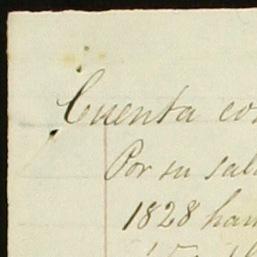 Cuenta co
Por su sal
1828 han